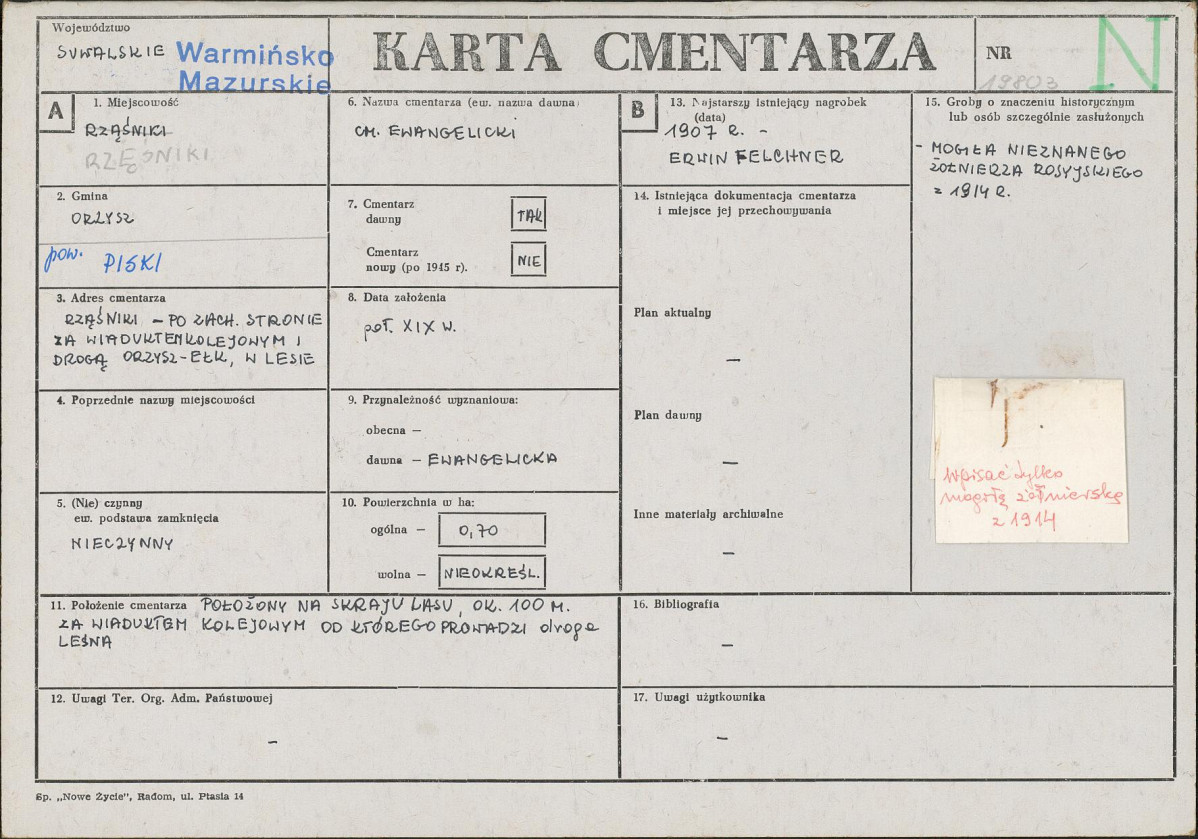 Województwo
SUWALSKIE Warmińsko
Mazurskie
KARTA CMENTARZA
NR
19803
N
A
1. Miejscowość
RZĄŚNIKI
RZĘŚNIKI
2. Gmina
ORZYSZ
pow. PISKI
3. Adres cmentarza
RZĄŚNIKI – PO ZACH. STRONIE
ZA WIADUKTEM KOLEJOWYM I
DROGĄ ORZYSZ-EŁK, W LESIE
4. Poprzednie nazwy miejscowości
5. (Nie) czynny
ew. podstawa zamknięcia
NIECZYNNY
6. Nazwa cmentarza (ew. nazwa dawna)
CM. EWANGELICKI
7. Cmentarz
dawny
TAK
Cmentarz
nowy (po 1945 r).
NIE
8. Data założenia
poł. XIX W.
9. Przynależność wyznaniowa:
obecna —
dawna — EWANGELICKA
10. Powierzchnia w ha:
ogólna — 0,70
wolna — NIEOKREŚL.
11. Położenie cmentarza POŁOŻONY NA SKRAJU LASU, OK. 100 M.
ZA WIADUKTEM KOLEJOWYM OD KTÓREGO PROWADZI droga
LEŚNA
12. Uwagi Ter. Org. Adm. Państwowej
–
B
13. Najstarszy istniejący nagrobek
(data)
1907 R. –
ERWIN FELCHNER
14. Istniejąca dokumentacja cmentarza
i miejsce jej przechowywania
Plan aktualny
—
Plan dawny
—
Inne materiały archiwalne
—
15. Groby o znaczeniu historycznym
lub osób szczególnie zasłużonych
- MOGIŁA NIEZNANEGO
ŻOŁNIERZA ROSYJSKIEGO
z 1914 R.
Wpisać tylko
mogiłę żołnierską
z 1914
16. Bibliografia
—
17. Uwagi użytkownika
—
Sp. „Nowe Życie", Radom, ul. Ptasia 14